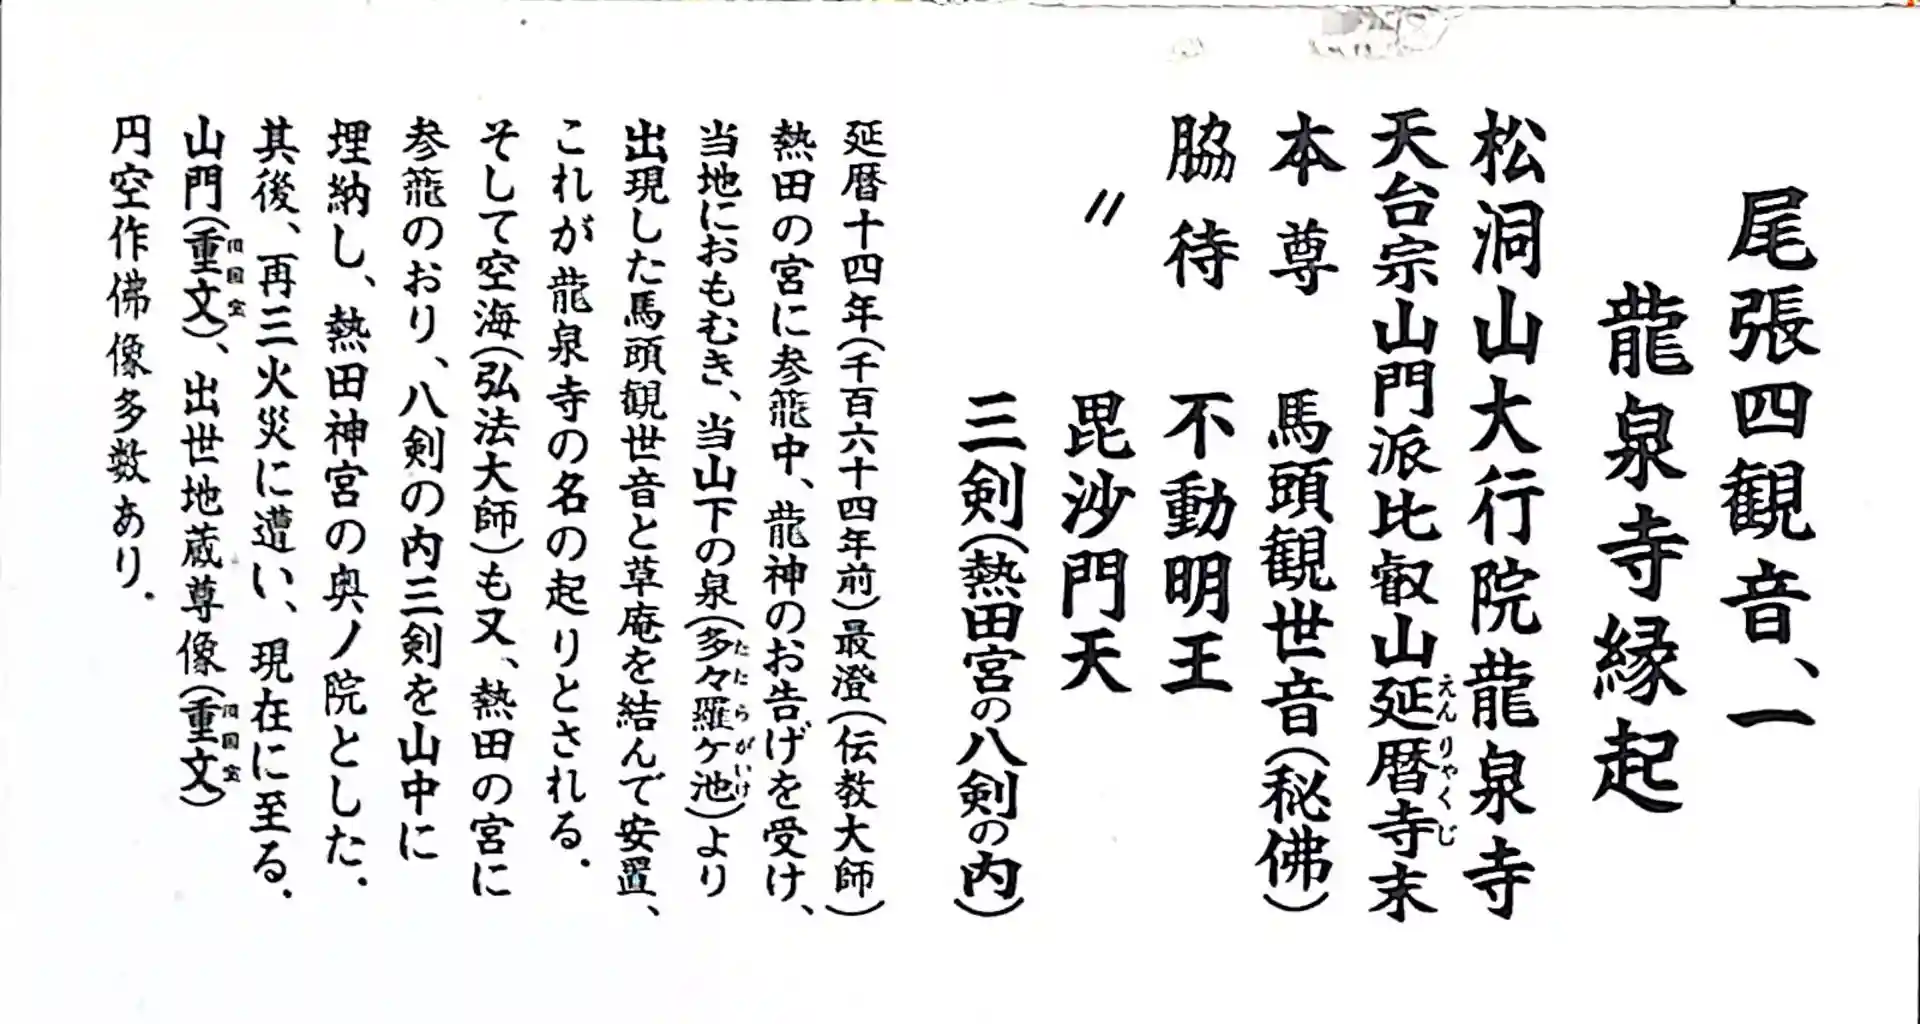 尾張四観音、一
龍泉寺縁起
松洞山大行院龍泉寺
天台宗山門派比叡山延暦寺末
えんりゃくじ
本尊 馬頭観世音(秘佛)
脇待 不動明王
〃 毘沙門天
三剣(熱田宮の八剣の内)
延暦十四年(千百六十四年前)最澄(伝教大師)
熱田の宮に参籠中、龍神のお告げを受け、
当地におもむき、当山下の泉(多々羅ヶ池)より
たたらがいけ
出現した馬頭観世音と草庵を結んで安置、
これが龍泉寺の名の起りとされる.
そして空海(弘法大師)も又、熱田の宮に
参籠のおり、八剣の内三剣を山中に
埋納し、熱田神宮の奥ノ院とした.
其後、再三火災に遭い、現在に至る.
山門(重文)、出世地蔵尊像(重文)
旧国宝
旧国宝
円空作佛像多数あり.